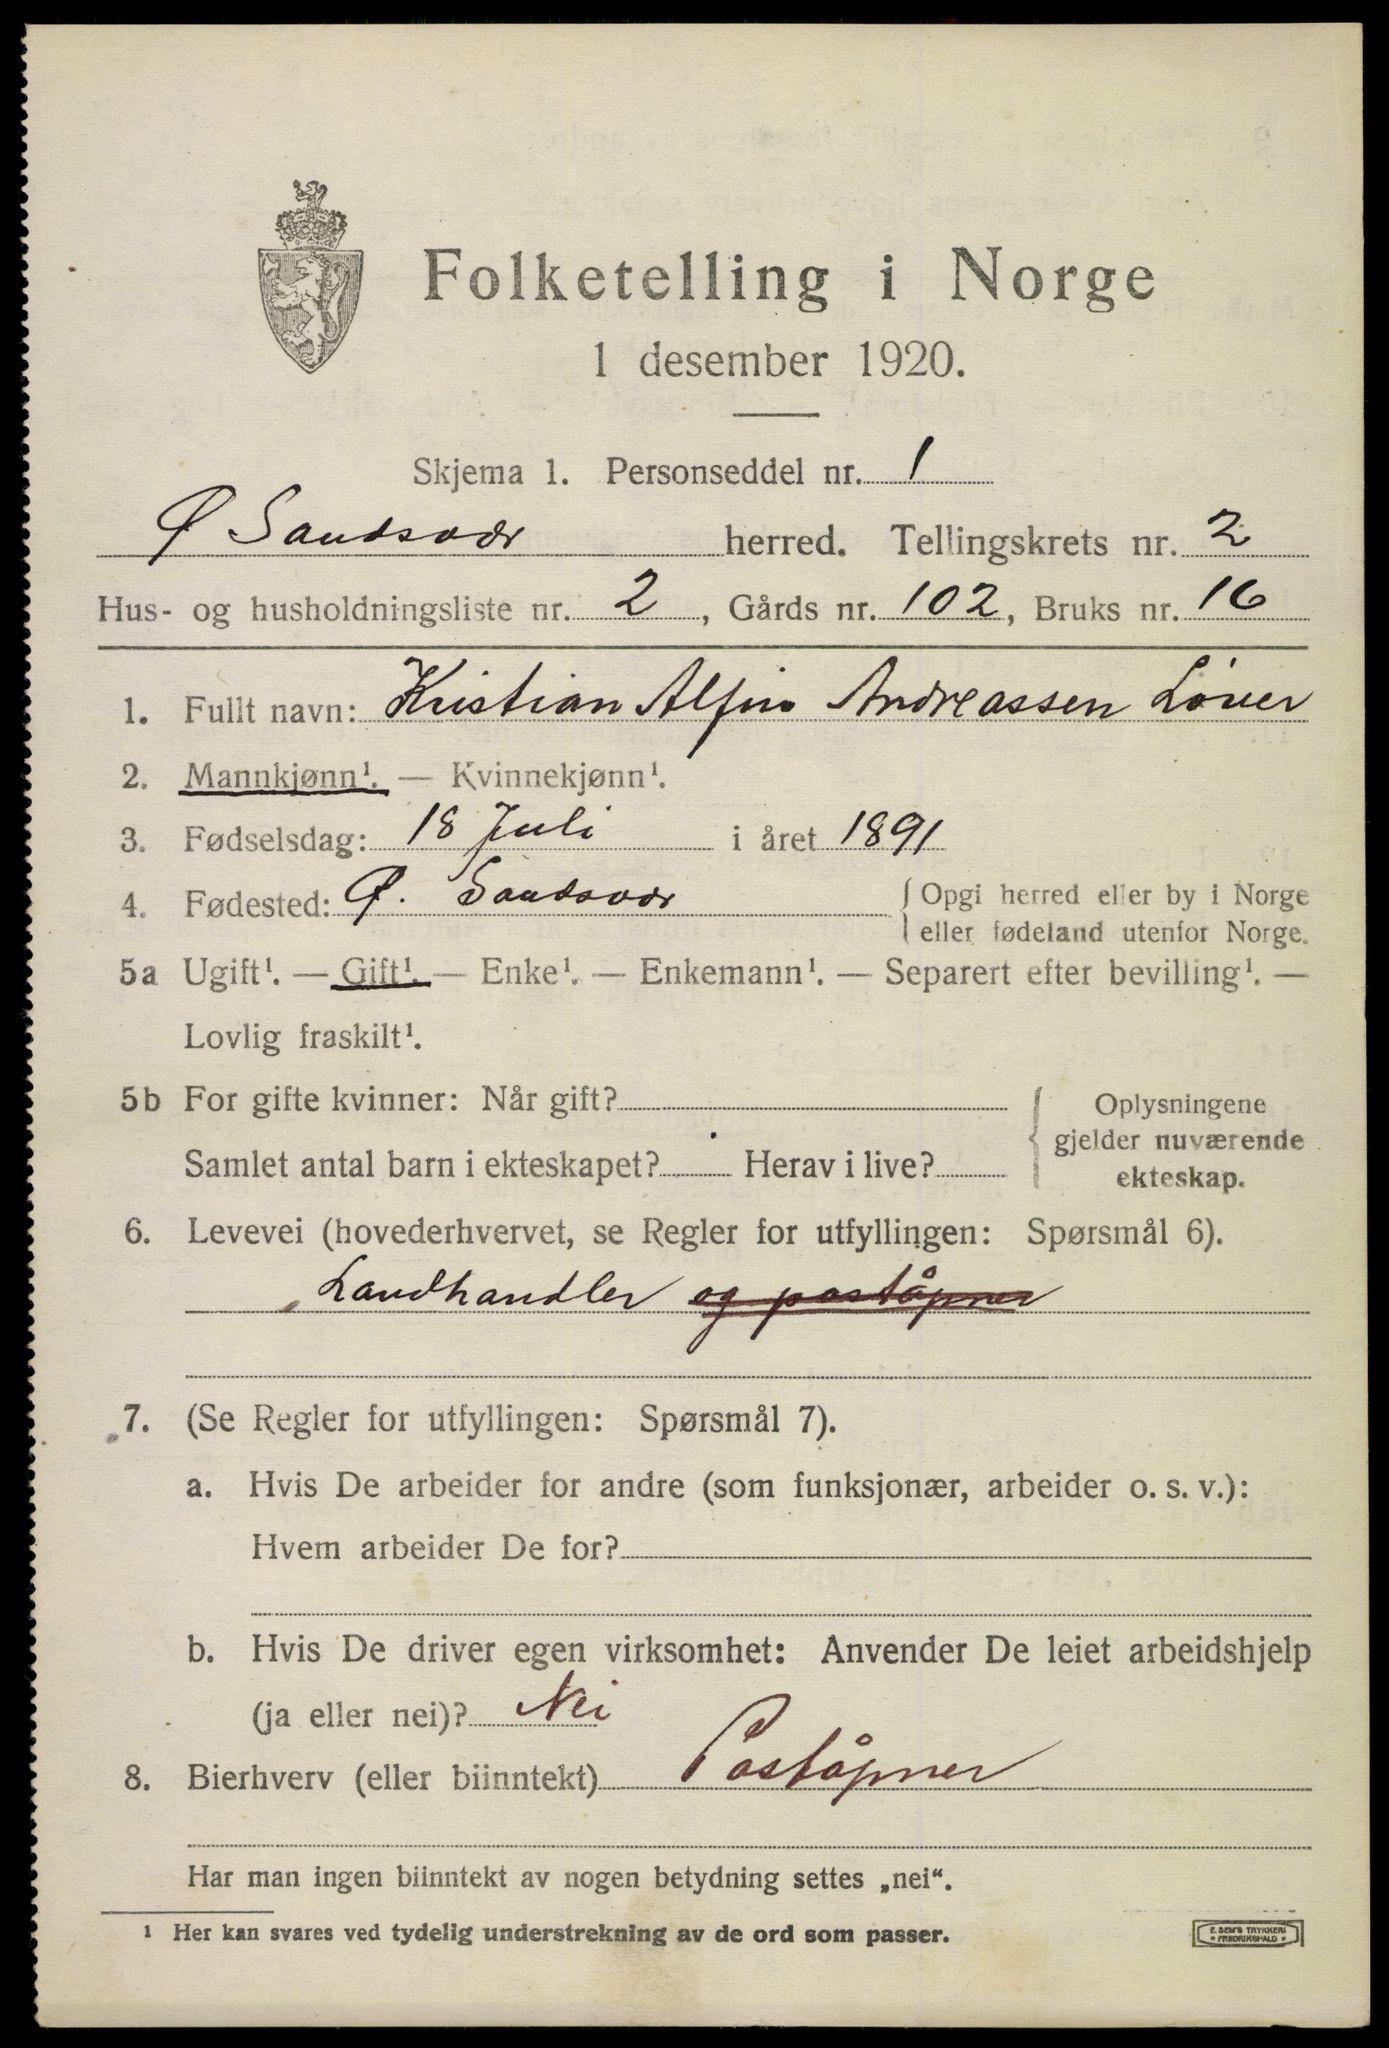 Folketelling i Norge
1 desember 1920.
Skjema 1. Personseddel nr. 1
Ø Sandsvær herred. Tellingskrets nr. 2
Hus- og husholdningsliste nr. 2, Gårds nr. 102, Bruks nr. 16
1. Fullt navn: Kristian Alfin Andreassen Löver
2. Mannkjønn¹. — Kvinnekjønn¹.
3. Fødselsdag: 18 Juli i året 1891
4. Fødested: Ø. Sandsvær { Opgi herred eller by i Norge
eller fødeland utenfor Norge.
5a Ugift¹. — Gift¹. — Enke¹. — Enkemann¹. — Separert efter bevilling¹. —
Lovlig fraskilt¹.
5b For gifte kvinner: Når gift?
Samlet antal barn i ekteskapet? Herav i live?
{ Oplysningene
gjelder nuværende
ekteskap.
6. Levevei (hovederhvervet, se Regler for utfyllingen: Spørsmål 6).
Landhandler og poståpner
7. (Se Regler for utfyllingen: Spørsmål 7).
a. Hvis De arbeider for andre (som funksjonær, arbeider o. s. v.):
Hvem arbeider De for?
b. Hvis De driver egen virksomhet: Anvender De leiet arbeidshjelp
(ja eller nei)? Nei
8. Bierhverv (eller biinntekt) Poståpner
Har man ingen biinntekt av nogen betydning settes „nei“.
¹ Her kan svares ved tydelig understrekning av de ord som passer.
E. SEM'S TRYKKERI
* FREDRIKSHALD *